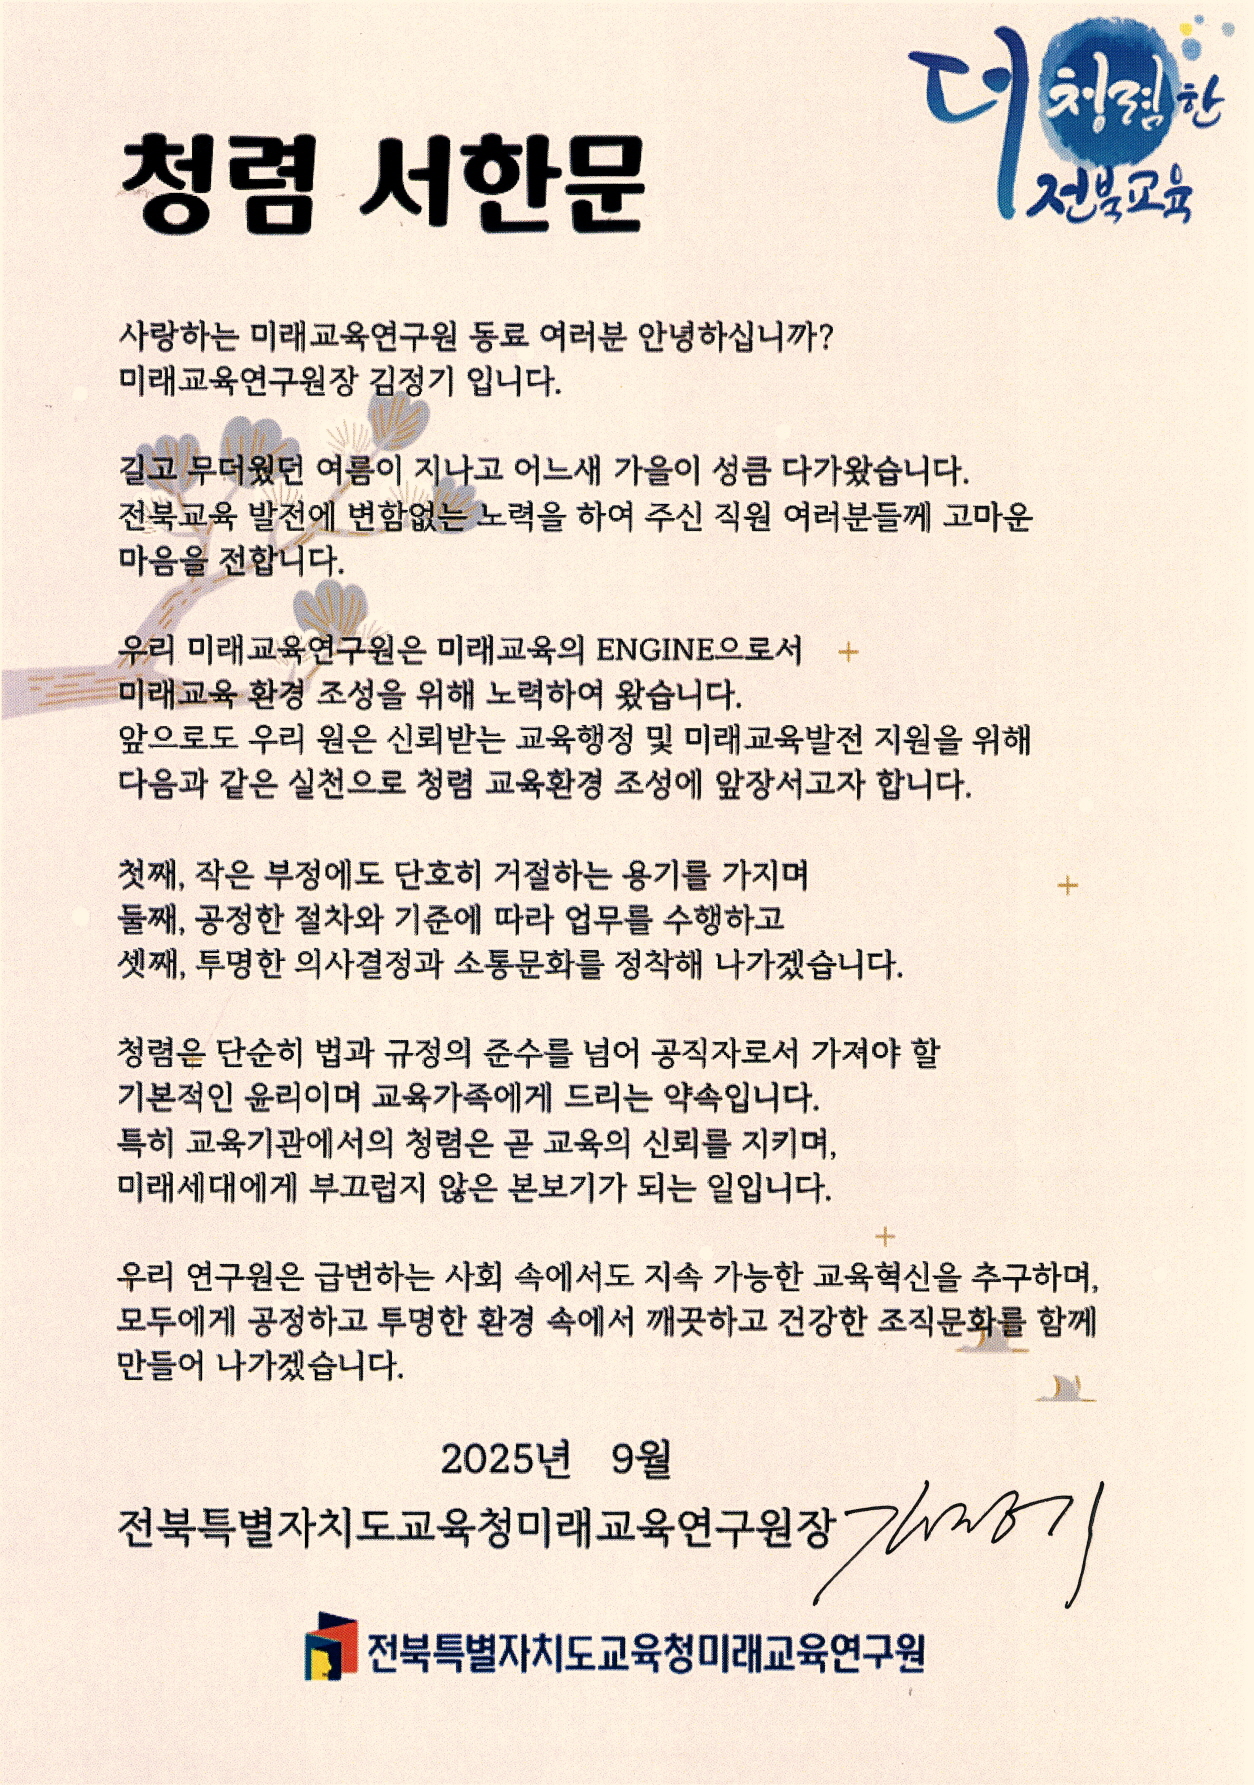 더 청렴한
전북교육
청렴 서한문
사랑하는 미래교육연구원 동료 여러분 안녕하십니까?
미래교육연구원장 김정기 입니다.
길고 무더웠던 여름이 지나고 어느새 가을이 성큼 다가왔습니다.
전북교육 발전에 변함없는 노력을 하여 주신 직원 여러분들께 고마운
마음을 전합니다.
우리 미래교육연구원은 미래교육의 ENGINE으로서
미래교육 환경 조성을 위해 노력하여 왔습니다.
앞으로도 우리 원은 신뢰받는 교육행정 및 미래교육발전 지원을 위해
다음과 같은 실천으로 청렴 교육환경 조성에 앞장서고자 합니다.
첫째, 작은 부정에도 단호히 거절하는 용기를 가지며
둘째, 공정한 절차와 기준에 따라 업무를 수행하고
셋째, 투명한 의사결정과 소통문화를 정착해 나가겠습니다.
청렴은 단순히 법과 규정의 준수를 넘어 공직자로서 가져야 할
기본적인 윤리이며 교육가족에게 드리는 약속입니다.
특히 교육기관에서의 청렴은 곧 교육의 신뢰를 지키며,
미래세대에게 부끄럽지 않은 본보기가 되는 일입니다.
우리 연구원은 급변하는 사회 속에서도 지속 가능한 교육혁신을 추구하며,
모두에게 공정하고 투명한 환경 속에서 깨끗하고 건강한 조직문화를 함께
만들어 나가겠습니다.
2025년 9월
전북특별자치도교육청미래교육연구원장 김정기
전북특별자치도교육청미래교육연구원